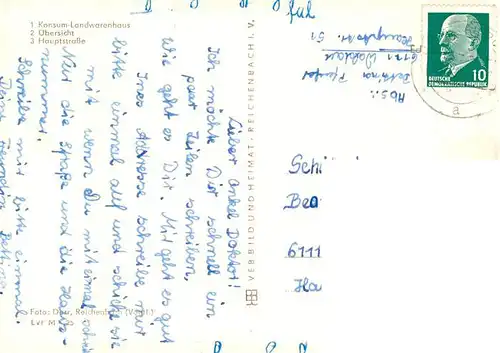 1 Konsum-Landwarenhaus
2 Übersicht
3 Hauptstraße
Lieber Onkel Doktor!
Ich möchte Dir schnell ein
paar Zeilen schreiben,
Wie geht es Dir. Mir geht es gut
Ines Addresse schreibe mir
bitte einmal auf und schicke sie
mit wenn Du mir einmal
Nur die Straße und die Haus-
nummer.
Schreibe mir bitte einmal.
Deine Freundin Bettina.
Foto: Reichenbach
VEB BILD UND HEIMAT · REICHENBACH I. V.
Abs.:
Bettina
6111
Hauptstr. 51
DEUTSCHE
DEMOKRATISCHE REPUBLIK
10
a
Schi
Bea
6111
Ha